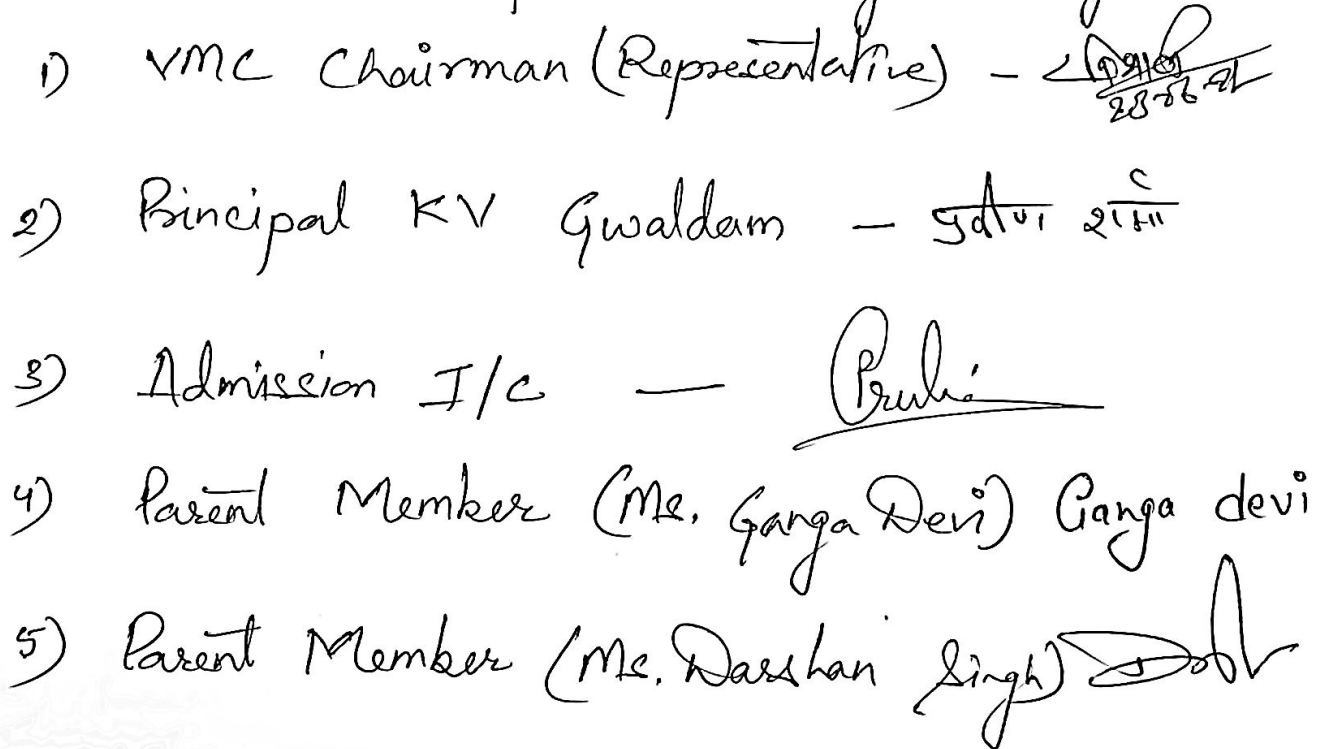 1) VMC Chairman (Representative) -
2) Principal KV Gwaldam - प्रवीण शर्मा
3) Admission I/C —
4) Parent Member (Ms. Ganga Devi) Ganga devi
5) Parent Member (Ms. Darshan Singh)